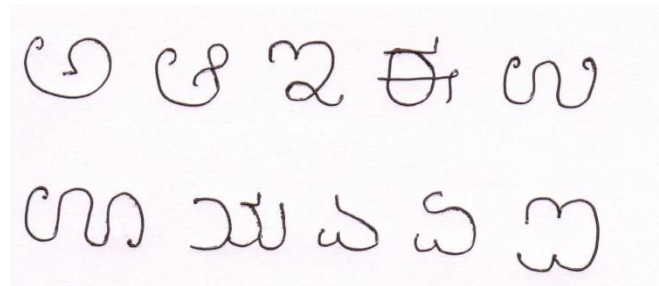 ಅ ಆ ಇ ಈ ಉ
ಊ ಋ ಎ ಏ ಐ